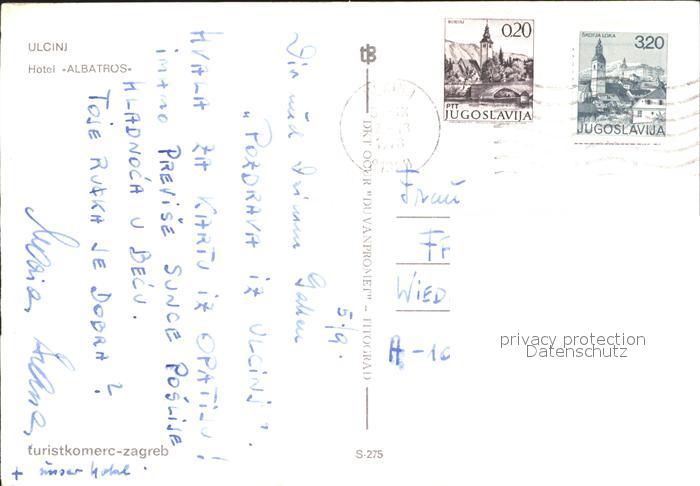 ULCINJ
Hotel «ALBATROS»
5/9.
Dir und Deinem
"POZDRAVA IZ ULCINJ".
HVALA ZA KARTU IZ OPATIJU!
IMAMO PREVIŠE SUNCE POŠLIJE
HLADNOĆA U BEČU.
TOJE RUSKA JE DOBRA?
Maria,
+ unser Hotel.
turistkomerc-zagreb
DKT OOUR "DUVANPROMET" – TITOGRAD
S-275
BOHINJ
0,20
PTT
JUGOSLAVIJA
ŠKOFJA LOKA
3,20
JUGOSLAVIJA
Frau
WIED
A-10
privacy protection
Datenschutz